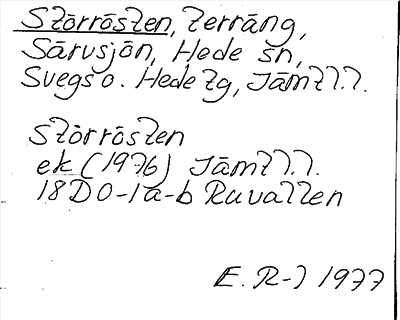 Storrösten, terräng,
Särvsjön, Hede sn,
Svegs o. Hede tg, Jämtl.l.
Storrösten
ek (1976) Jämtl.l.
18D 0-1a-b Ruvallen
E. R-l 1977